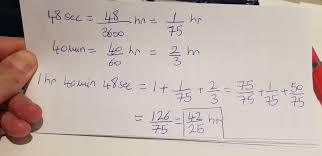 48 sec = 48/3600 hr = 1/75 hr
40min = 40/60 hr = 2/3 hr
1 hr 40min 48sec = 1 + 1/75 + 2/3 = 75/75 + 1/75 + 50/75
= 126/75 = 42/25 hr